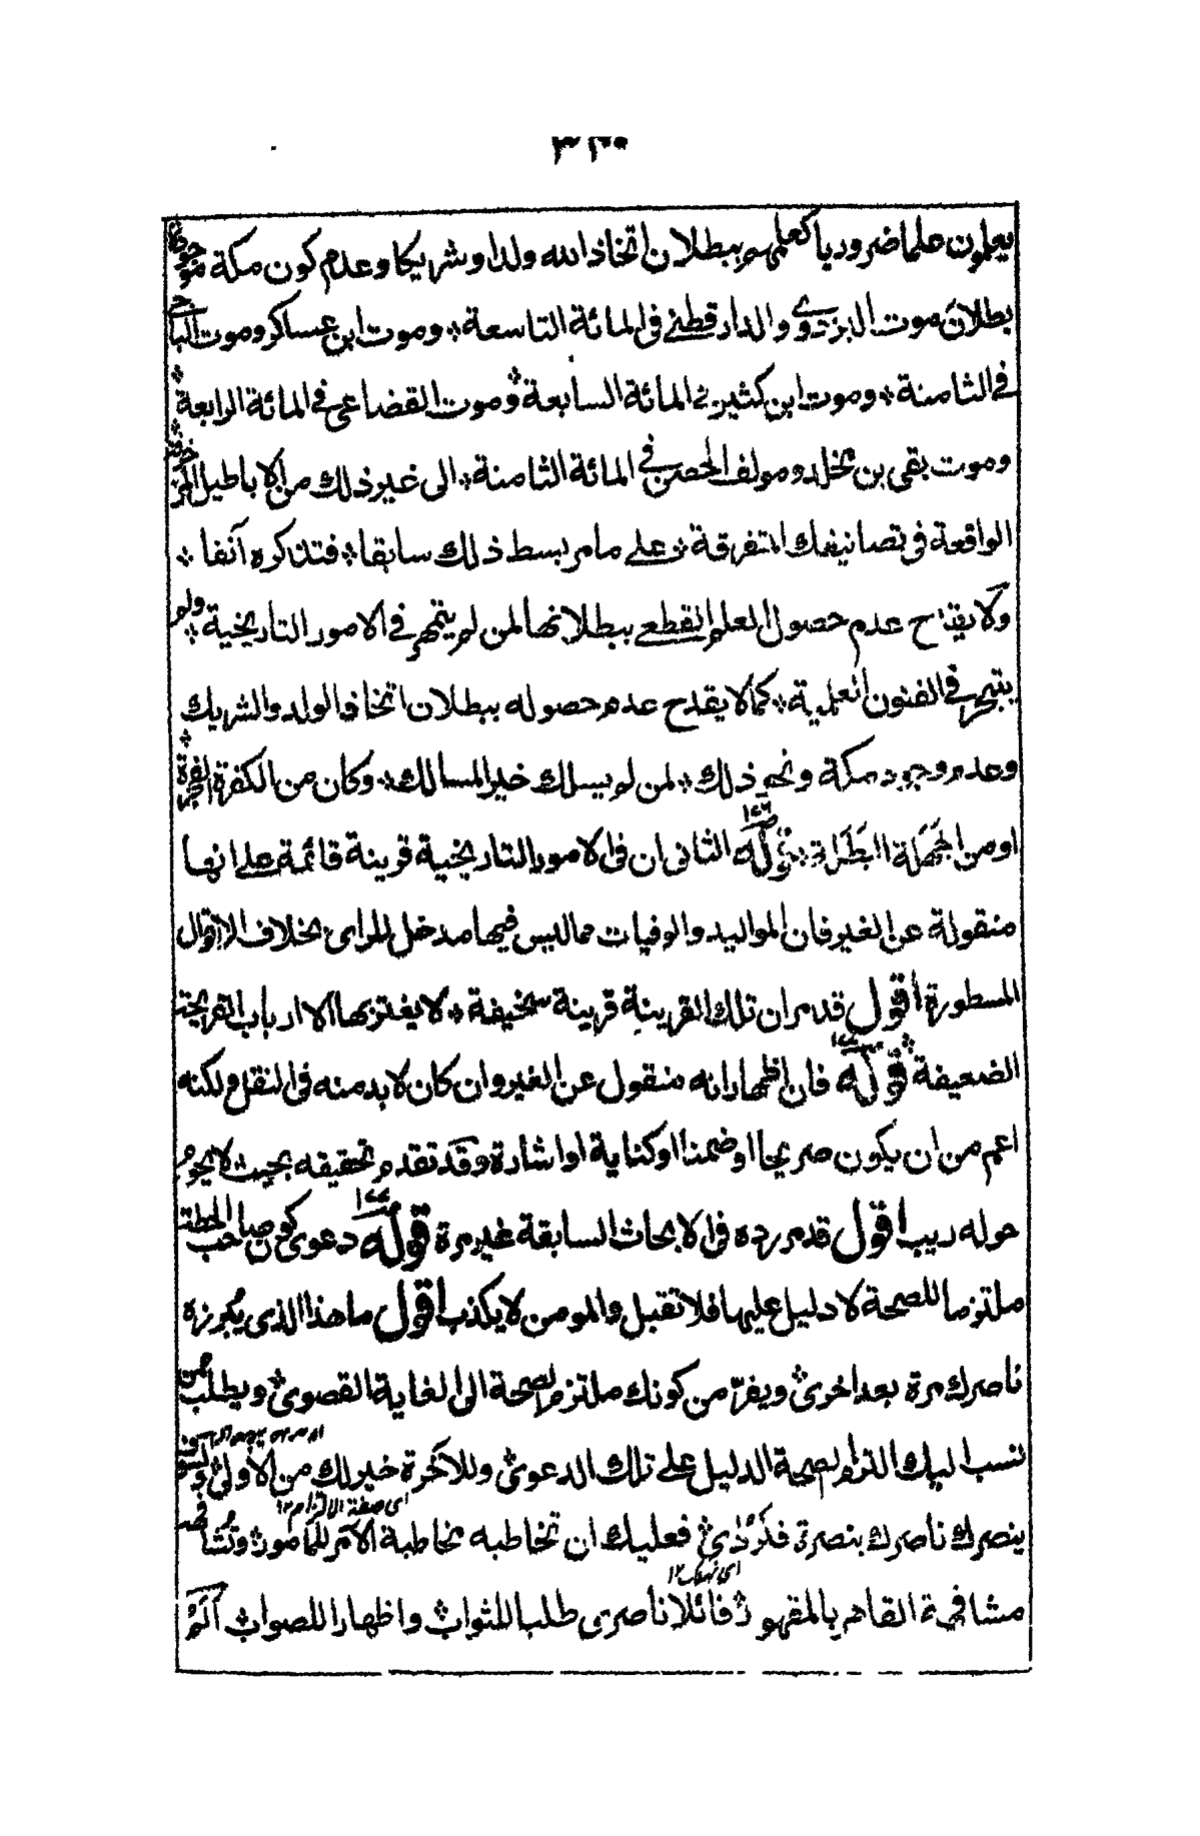 يعلمون علما ضروريا كعلمهم ببطلان اتخاذ الله ولدا وشريكا وعدم كون مكة موجودة
بطلان موت البزدوي والدارقطني في المائة التاسعة * وموت ابن عساكر وموت الباجي
في الثامنة * وموت ابن كثير في المائة السابعة * وموت القضاعي في المائة الرابعة *
وموت بقي بن مخلد ومولف الحصن في المائة الثامنة * الى غير ذلك من الاباطيل المزخرفة
الواقعة في تصانيفك المتفرقة * على ما مر بسط ذلك سابقا * فتذكره آنفا *
ولا يقدح عدم حصول العلم القطعي ببطلانها لمن لم يتمهر في الامور التاريخية * ولم
يتبحر في الفنون العلمية * كما لا يقدح عدم حصوله ببطلان اتخاذ الولد والشريك *
وعدم وجود مكة ونحو ذلك * لمن لم يسلك خير المسالك * وكان من الكفرة الفجرة
او من الجهلة البطلة * قوله الثاني ان في الامور التاريخية قرينة قائمة على انها
منقولة عن الغير فان المواليد والوفيات مما ليس فيها مدخل للراى بخلاف الاقوال
المسطورة اقول قد مر ان تلك القرينة قرينة سخيفة * لا يغتر بها الا ارباب القريحة
الضعيفة * قوله ١٤٧ فان اظهار انه منقول عن الغير وان كان لا بد منه في النقل ولكنه
اعم من ان يكون صريحا او ضمنا او كناية او اشارة وقد تقدم تحقيقه بحيث لا يحوم
حوله ريب اقول قد مر رده في الابحاث السابقة غير مرة قوله دعوى كون صاحب الحطة
ملتزما للصحة لا دليل عليها فلا تقبل والمومن لا يكذب اقول ما هذا الذي يبرزه
ناصرك مرة بعد اخرى * ويفر من كونك ملتزم الصحة الى الغاية القصوى * ويطلب ممن
نسب اليك التزام الصحة الدليل على تلك الدعوى * وللآخرة خير لك من الاولى * ولسوف
ينصرك ناصرك بنصرة فتردى * فعليك ان تخاطبه مخاطبة الآمر للمامور * وتشافهه
اى صفة الالتزام ١٢
مشافهة القاهر بالمقهور * قائلا ناصرى طلبا للثواب * واظهارا للصواب * ألم